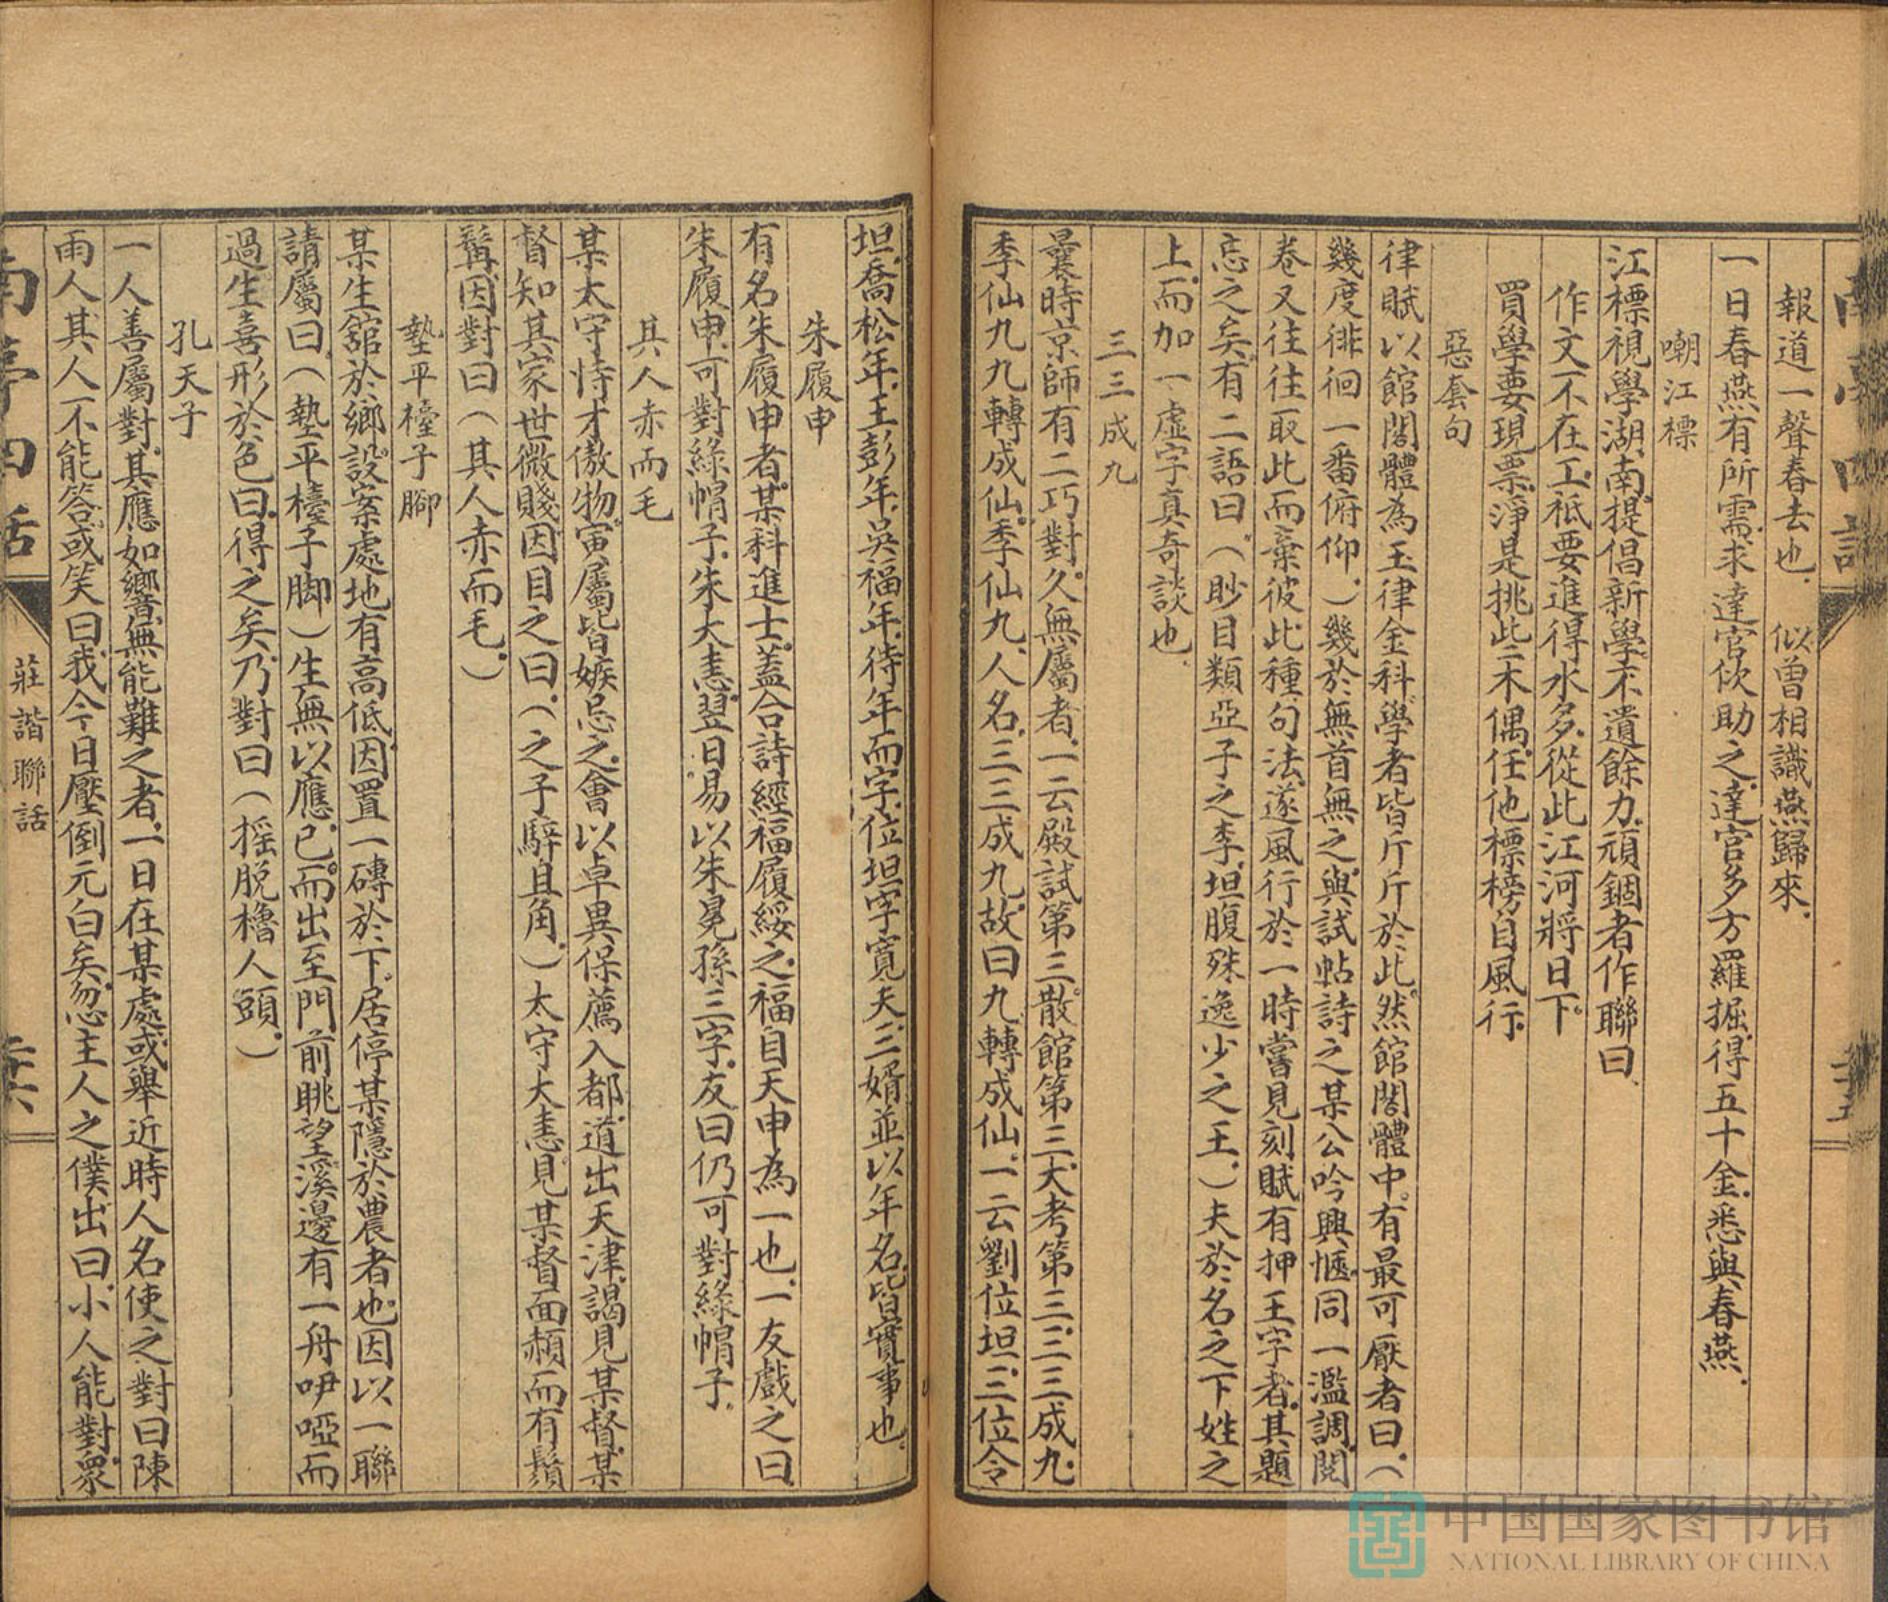 南亭四話
報道一聲春去也.似曾相識燕歸來.
一日春燕有所需.求達官佽助之.達官多方羅掘.得五十金.悉與春燕.
嘲江標
江標視學湖南.提倡新學.不遺餘力.頑錮者作聯曰.
作文不在工.祗要進得水多.從此江河將日下.
買學要現票.淨是挑些木偶.任他標榜自風行.
惡套句
律賦以館閣體為玉律金科.學者皆斤斤於此.然館閣體中.有最可厭者曰.（
幾度徘徊一番俯仰.）幾於無首無之.與試帖詩之某公吟興愜.同一濫調.閱
卷又往往取此而棄彼.此種句法.遂風行於一時.嘗見刻賦有押王字者.其題
忘之矣.有二語曰.（眇目類亞子之李.坦腹殊逸少之王.）夫於名之下姓之
上.而加一虛字.真奇談也.
三三成九
曩時京師有二巧對.久無屬者.一云殿試第三.散館第三.大考第三.三三成九.
季仙九.九轉成仙.季仙九.人名.三三成九.故曰九轉成仙.一云劉位坦.三位令
坦.喬松年.王彭年.吳福年.待年而字.位坦字寬夫.三婿並以年名.皆實事也.
朱履申
有名朱履申者.某科進士.蓋合詩經福履綏之.福自天申為一也.一友戲之曰.
朱履申.可對綠帽子.朱大恚.翌日易以朱冕孫三字.友曰仍可對綠帽子.
其人赤而毛
某太守恃才傲物.寅屬皆嫉忌之.會以卓異保薦入都.道出天津.謁見某督.某
督知其家世微賤.因目之曰.（之子騂且角.）太守大恚.見某督面頳而有鬚
髯.因對曰（其人赤而毛.）
墊平檯子腳
某生舘於鄉.設案處地有高低.因置一磚於下.居停某隱於農者也.因以一聯
請屬曰.（墊平檯子脚）生無以應.已而出至門前眺望.溪邊有一舟咿啞而
過.生喜形於色曰.得之矣.乃對曰（搖脫櫓人頭.）
孔天子
一人善屬對.其應如響.無能難之者.一日在某處.或舉近時人名使之對曰陳
雨人.其人不能答.或笑曰.我今日壓倒元白矣.忽主人之僕出曰.小人能對.衆
南亭四話
莊諧聯話